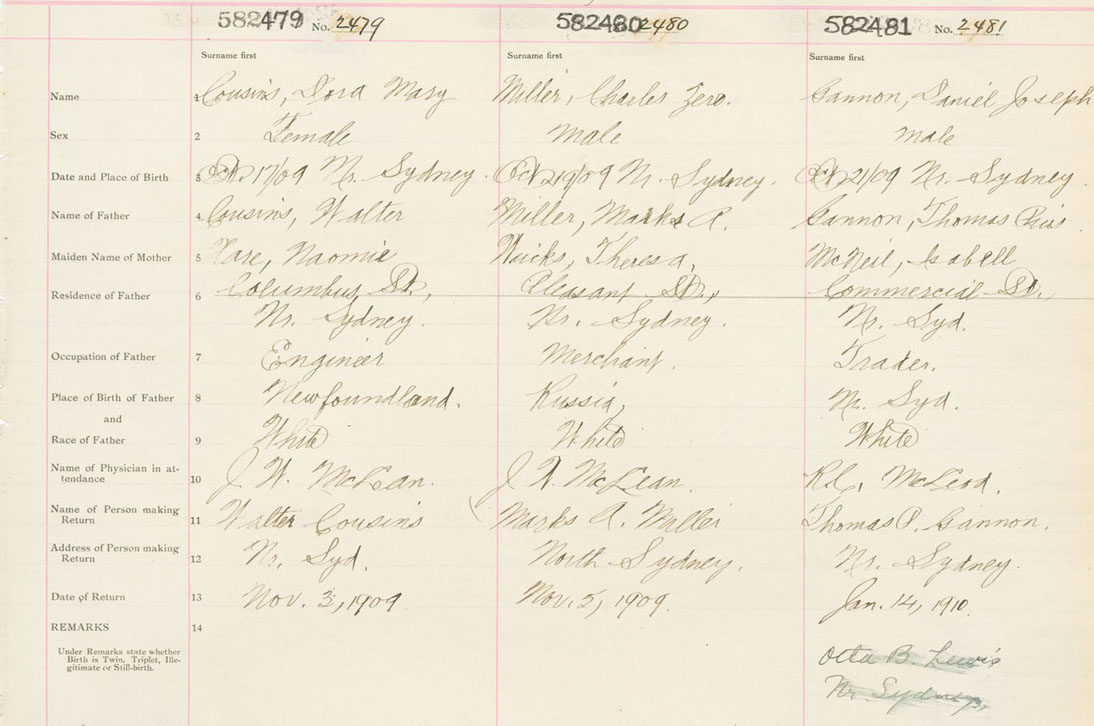 582479 No. 2479
582480 2480
582481 No. 2481
Surname first
Surname first
Surname first
Name 1 Cousins, Dora Mary
Miller, Charles Zero.
Gannon, Daniel Joseph
Sex 2 Female
Male
Male
Date and Place of Birth 3 Oct. 17/09 Nr. Sydney.
Oct 29/09 Nr. Sydney.
Oct. 21/09 Nr. Sydney
Name of Father 4. Cousins, Walter
Miller, Marks A.
Gannon, Thomas Pius
Maiden Name of Mother 5 Hare, Naomie
Theresa,
McNeil, Isabell
Residence of Father 6 Columbus, St.,
Pleasant St.,
Commercial St.,
Nr. Sydney.
Nr. Sydney.
Nr. Syd.
Occupation of Father 7 Engineer
Merchant.
Trader.
Place of Birth of Father 8 Newfoundland.
Russia,
Nr. Syd.
and
Race of Father 9 White
White
White
Name of Physician in at-
tendance 10 J. W. McLean.
J. W. McLean.
McLeod.
Name of Person making
Return 11 Walter Cousins
Marks A. Miller
Thomas P. Gannon.
Address of Person making
Return 12 Nr. Syd.
North Sydney.
Nr. Sydney.
Date of Return 13 Nov. 3, 1909
Nov. 5, 1909.
Jan. 14, 1910.
REMARKS 14
Under Remarks state whether
Birth is Twin, Triplet, Ille-
gitimate or Still-birth.
Otta B. Lewis
Nr. Sydney,